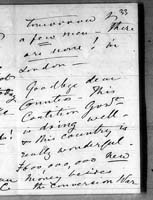 33
tomorrow & there
a few men - there
are none! in
London -
Goodbye dear
Countess - This
Coalition Govt
is doing well -
& this country is
really wonderful -
600,000,000 new
money besides
the conversion War